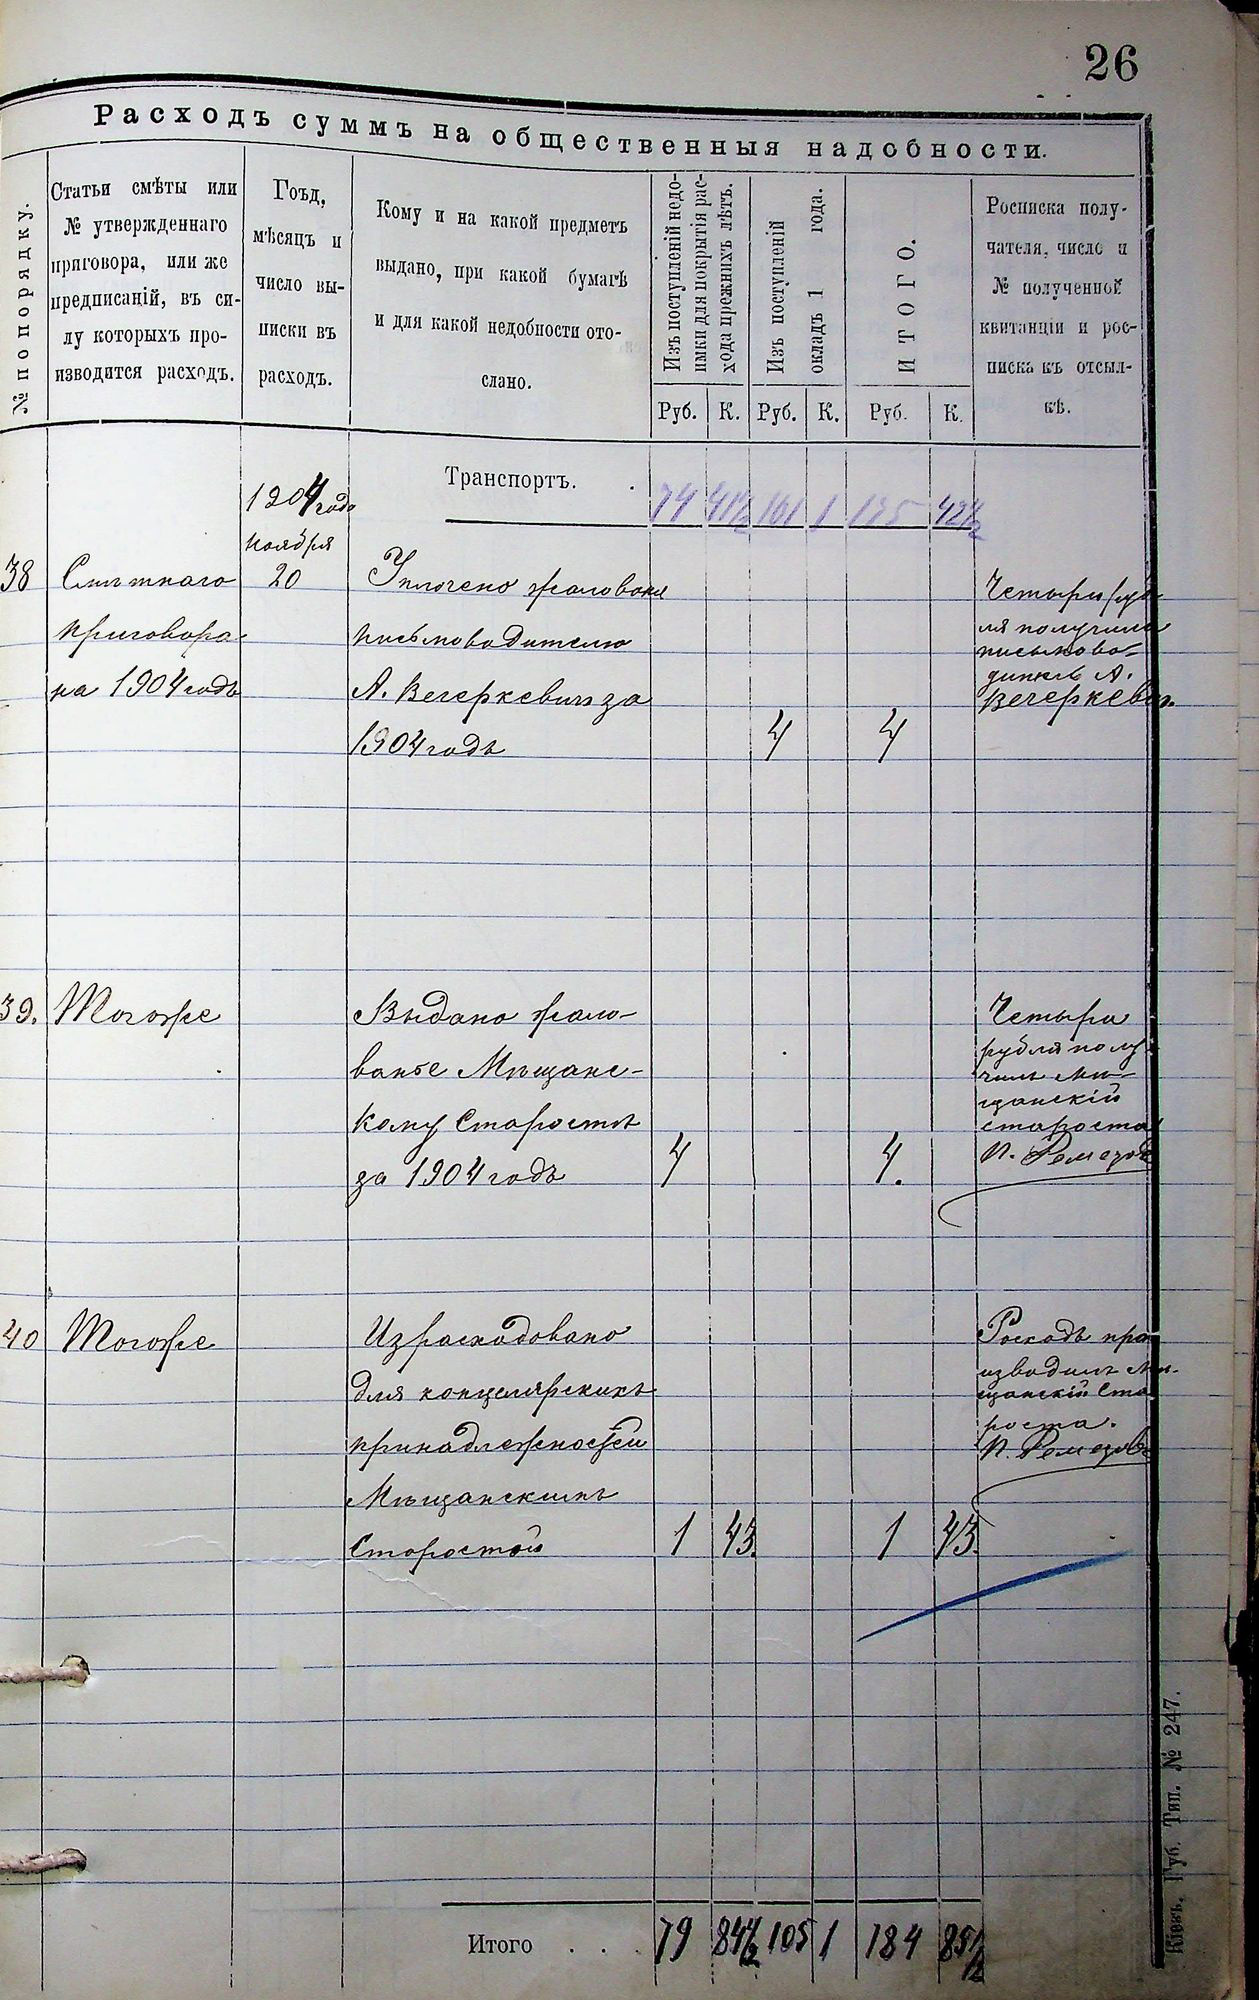 26
Расходъ суммъ на общественныя надобности.
№ по порядку.
Статьи смѣты или
№ утвержденнаго
приговора, или же
предписаній, въ си-
лу которыхъ про-
изводится расходъ.
Гоъд,
мѣсяцъ и
число вы-
писки въ
расходъ.
Кому и на какой предметъ
выдано, при какой бумагѣ
и для какой недобности ото-
слано.
Изъ поступленій недо-
имки для покрытія рас-
хода прежнихъ лѣтъ.
Изъ поступленій
окладъ 1 года.
ИТОГО.
Росписка полу-
чателя, число и
№ полученной
квитанціи и рос-
писка къ отсыл-
кѣ.
Руб. К. Руб. К. Руб. К.
Транспортъ.
74 41½ 101 1 175 42½
1904 года
ноября
38 Смѣтнаго 20 Уплочено жалованя
приговора
на 1904 годъ
письмоводителю
А. Вечеркевичъ за
1904 годъ 4 4
Четыри руб
ля получилъ
письмово-
дитель А.
Вечеркевич.
39. Тогоже
Выдано жало-
ванье Мѣщанс-
кому Старостѣ
за 1904 годъ 4 4.
Четыри
рубля полу
чилъ Мѣ-
щанскій
староста
П. Ремезов
40 Тогоже
Израсходовано
для концелярскихъ
принадлежностей
Мѣщанскимъ
Старостой 1 43. 1 43.
Росходъ про
изводилъ Мѣ-
щанскій Ста
роста.
П. Ремезов
Итого . . . 79 84½ 105 1 184 85½
Кіевъ, Губ. Тип. № 247.